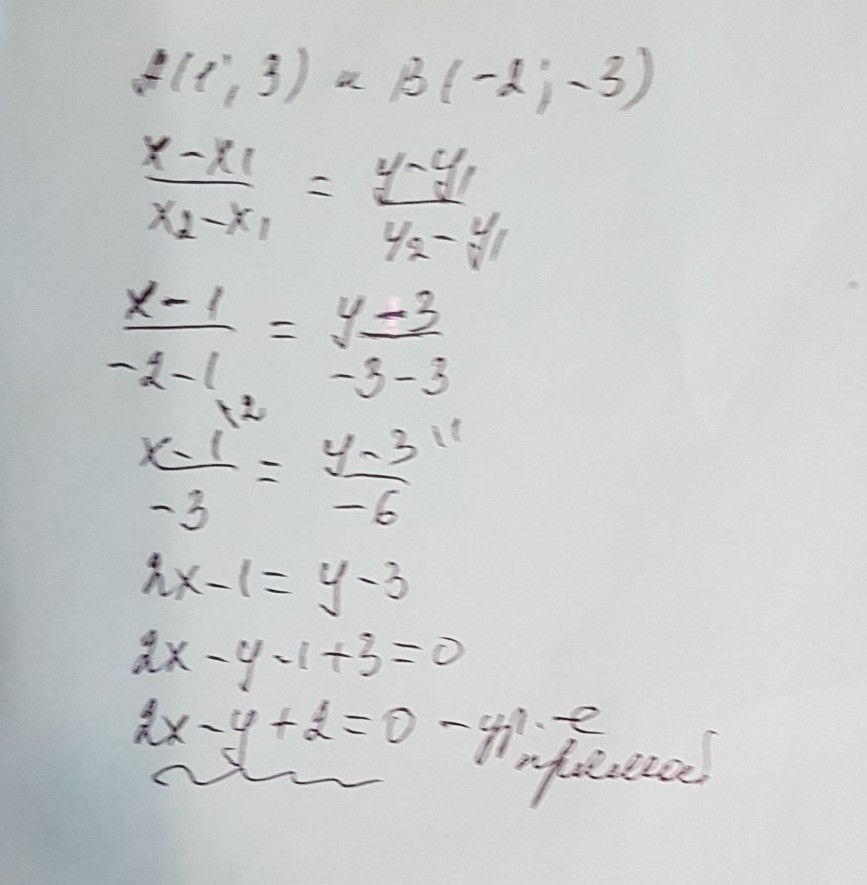 A(1; 3) и B(-2; -3)
x-x₁ / x₂-x₁ = y-y₁ / y₂-y₁
x-1 / -2-1 = y-3 / -3-3
x-1 \2 / -3 = y-3 \1 / -6
2x-1 = y-3
2x-y-1+3=0
2x-y+2=0 - ур-е
прямой